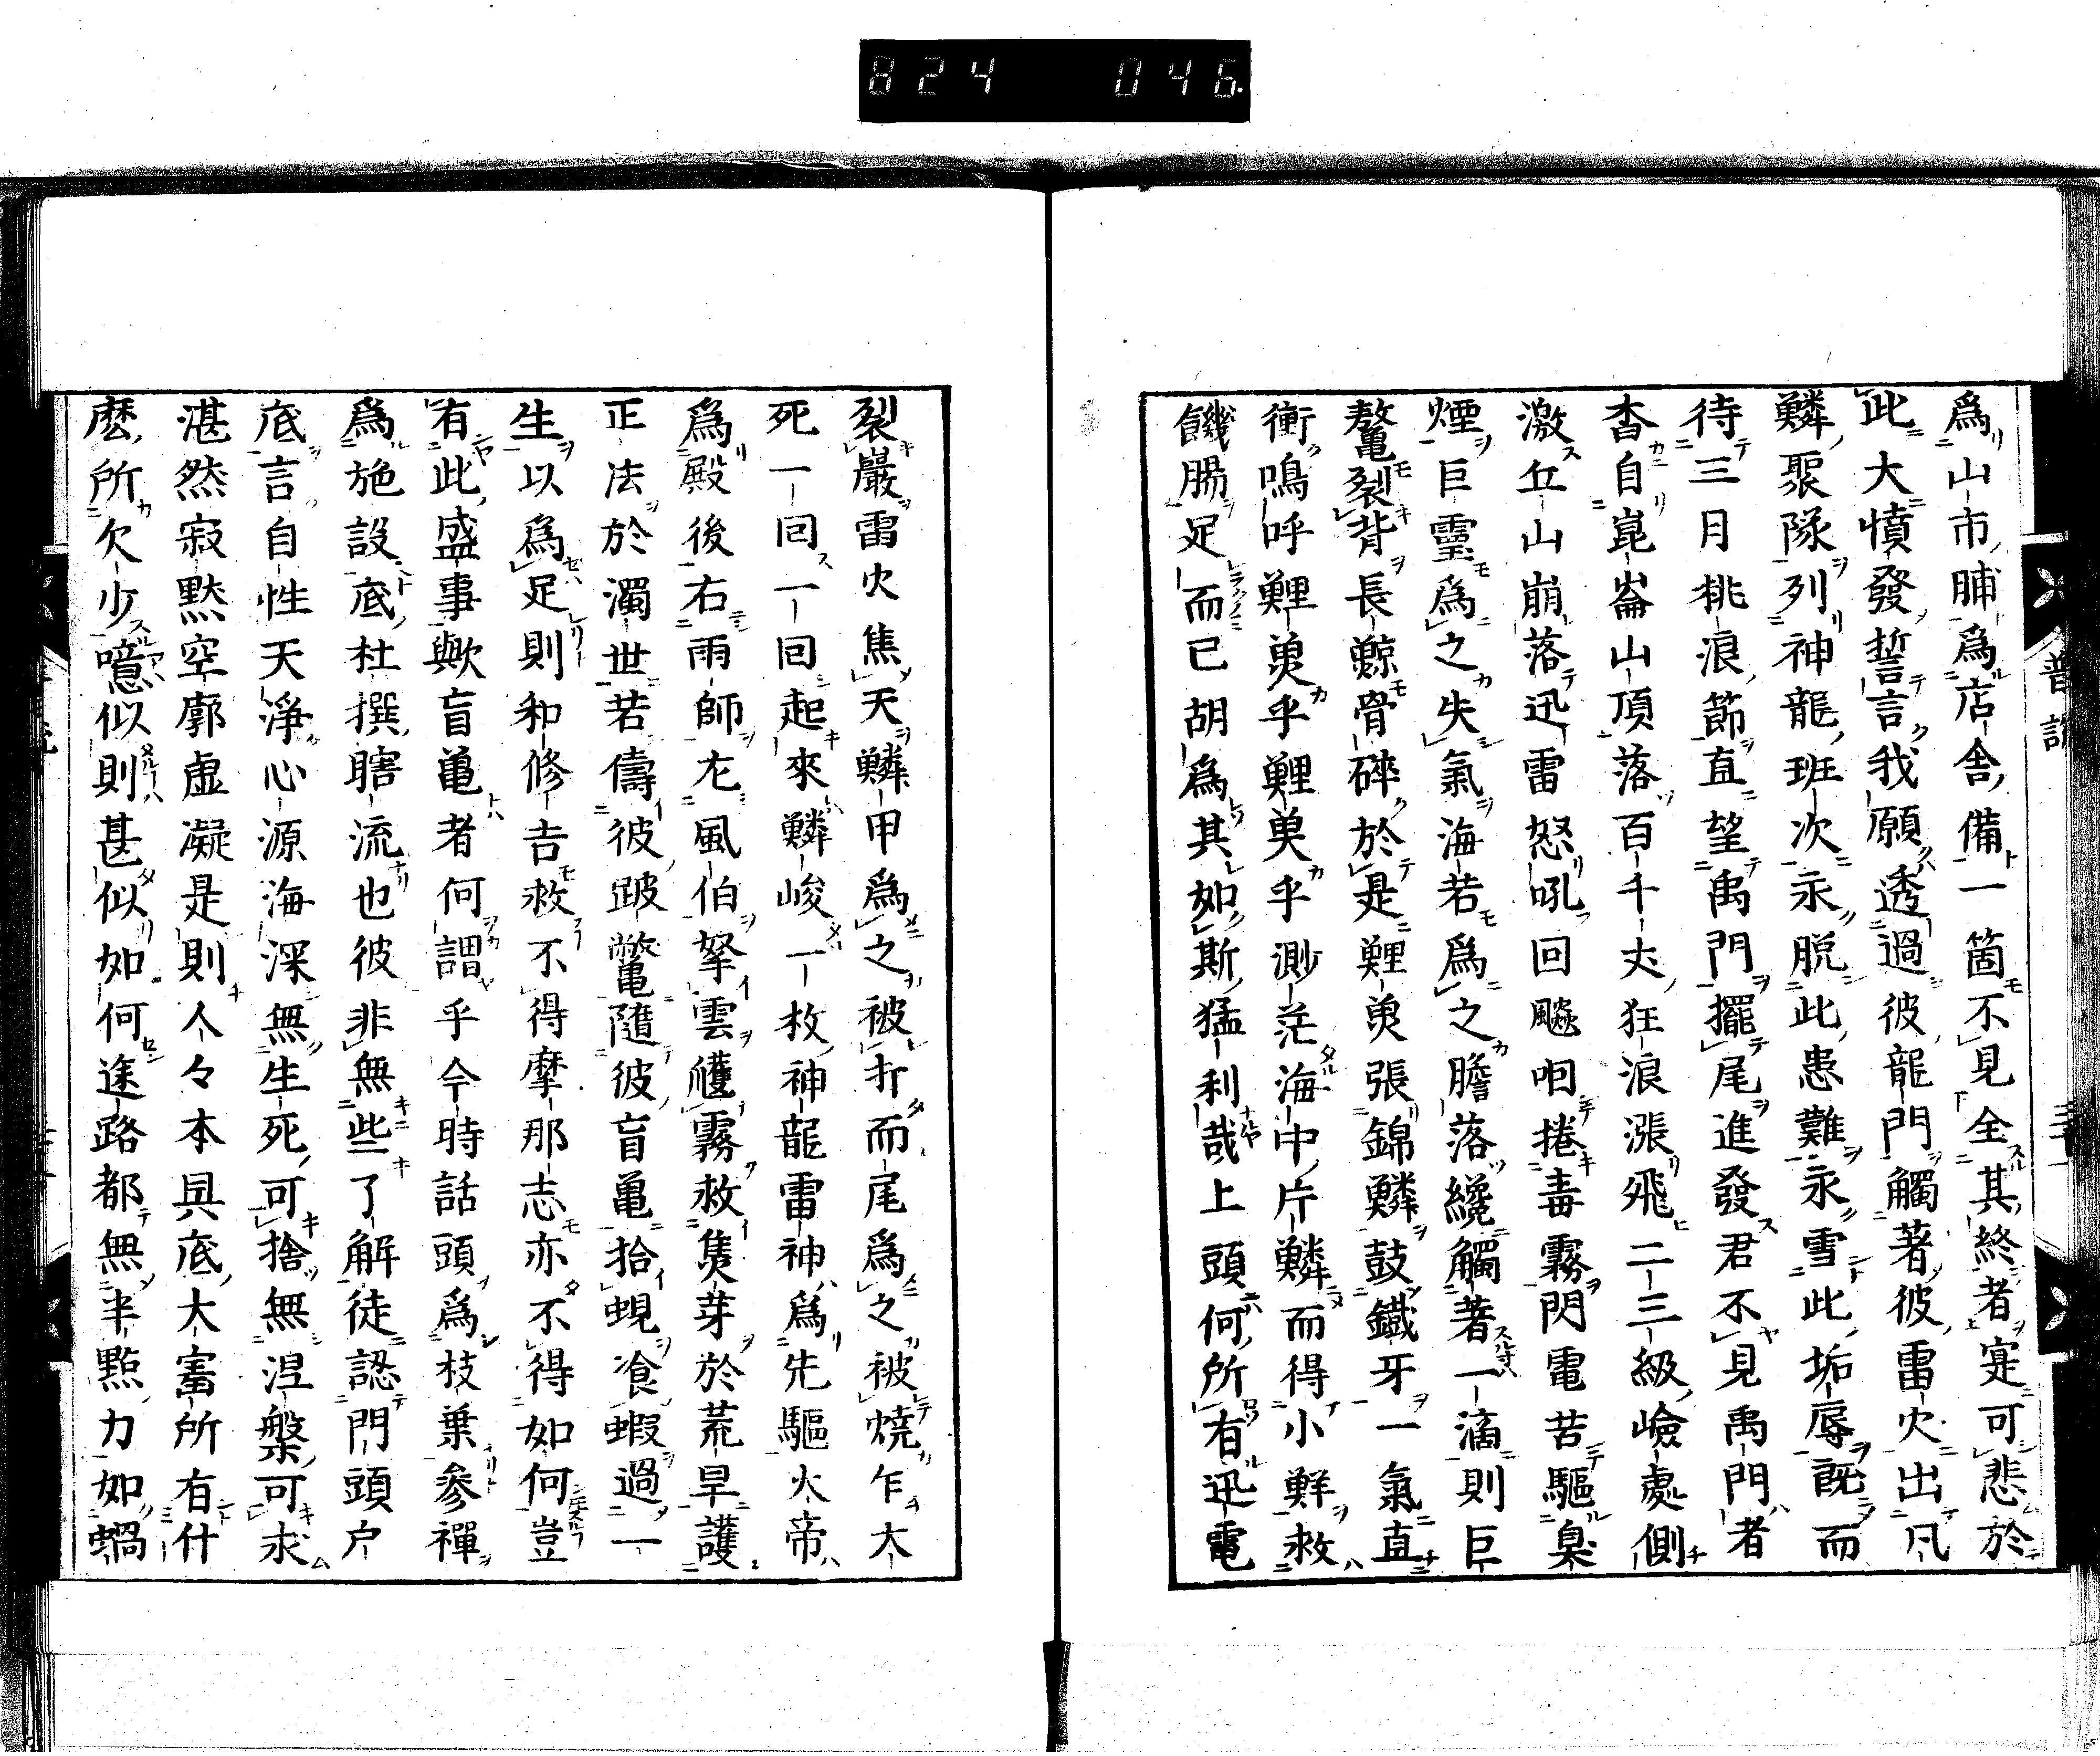 824 046
爲山市脯爲店舎備一箇不見全其終者寔可悲於
此大憤發誓言我願透過彼龍門觸著彼雷火出凡
鱗聚隊列神龍班次永脱此患難永雪此垢辱既而
待三月桃浪節直望禹門擺尾進發君不見禹門者
杳自崑崙山頂落百千丈狂浪漲飛二三級嶮處側
激丘山崩落迅雷怒吼回飈呬捲毒霧閃電苦驅梟
煙巨靈爲之失氣海若爲之膽落纔觸著一滴則巨
鼇裂背長鯨骨碎於是鯉魚張錦鱗鼓鐵牙一氣直
衝鳴呼鯉魚乎鯉魚乎渺茫海中片鱗而得小鮮救
饑腸足而已胡爲其如斯猛利哉上頭何所有迅電
裂巖雷火焦天鱗甲爲之被打而尾爲之被燒乍大
死一回一回起來鱗峻一枚神龍雷神爲先驅火帝
爲殿後右雨師左風伯拏雲䨥霧救焦芽於荒旱護
正法於濁世若儔彼跛鼈隨彼盲亀拾蜆飡蝦過一
生以爲足則和修吉救不得摩那志亦不得如何豈
有此盛事歟盲亀者何謂乎今時話頭爲枝葉參禪
爲施設底杜撰瞎流也彼非無些了解徒認門頭户
底言自性天淨心源海深無生死可捨無涅槃可求
湛然寂黙空廓虚凝是則人々本具底大寶所有什
麽所欠少噫似則甚似如何途路都無半點力如蝸